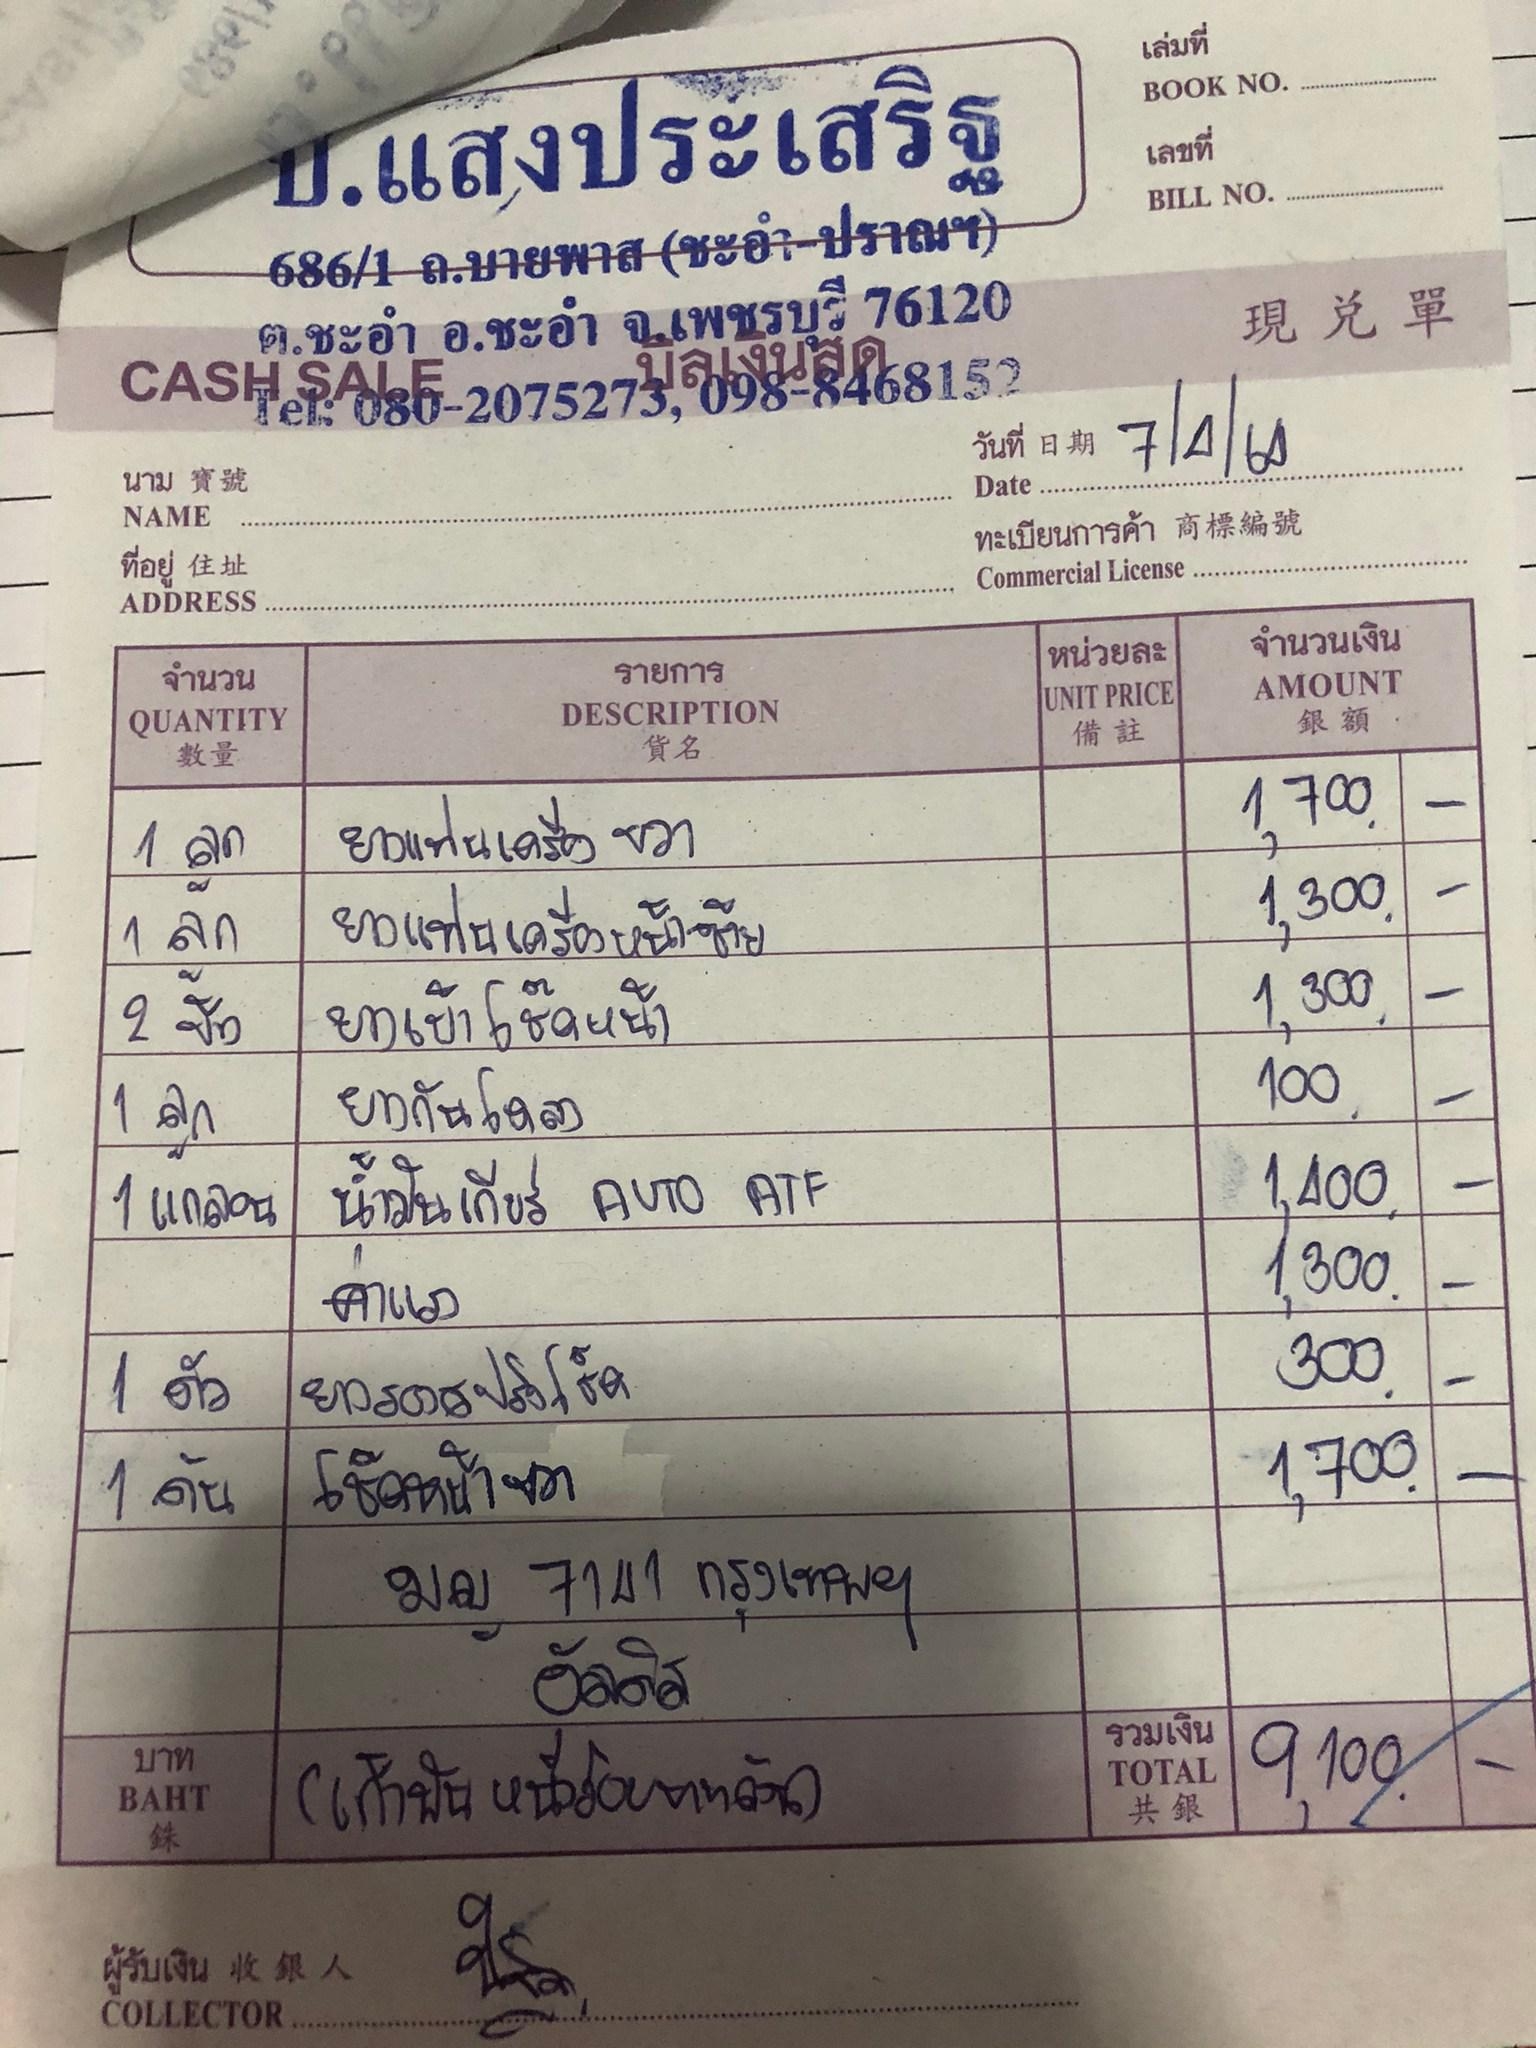 ป.แสงประเสริฐ
686/1 ถ.บายพาส (ชะอำ-ปราณฯ)
ต.ชะอำ อ.ชะอำ จ.เพชรบุรี 76120
Tel: 080-2075273, 098-8468152
เล่มที่
BOOK NO.
เลขที่
BILL NO.
CASH SALE บิลเงินสด 現兑單
วันที่ 日期 7/4/64
Date
นาม 寶號
NAME
ที่อยู่ 住址
ADDRESS
ทะเบียนการค้า 商標編號
Commercial License
จำนวน รายการ หน่วยละ จำนวนเงิน
QUANTITY DESCRIPTION UNIT PRICE AMOUNT
數量 貨名 備註 銀額
1 ลูก ยางแท่นเครื่อง ขวา 1,700 -
1 ลูก ยางแท่นเครื่องหน้าซ้าย 1,300 -
2 ชิ้น ยางเบ้าโช๊คหน้า 1,300 -
1 ลูก ยางกันโคลง 100 -
1 แกลอน น้ำมันเกียร์ AUTO ATF 1,400 -
ค่าแรง 1,300 -
1 ตัว ยางรองสปริงโช๊ค 300 -
1 ต้น โช๊คหน้าขวา 1,700 -
7141 กรุงเทพฯ
อัลติส
บาท
BAHT
銖
(เก้าพันหนึ่งร้อยบาทถ้วน)
รวมเงิน
TOTAL
共銀
9,100 -
ผู้รับเงิน 收銀人
COLLECTOR